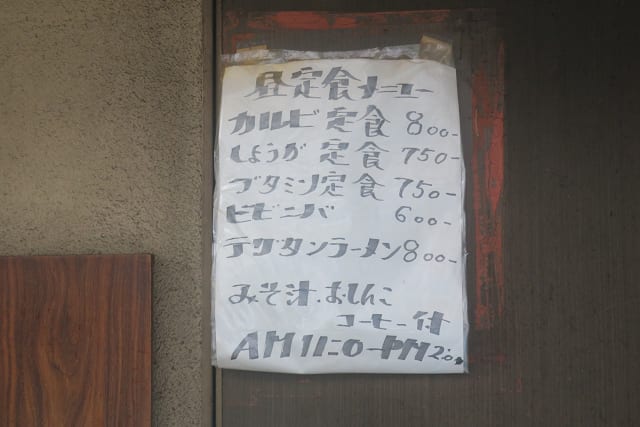 昼定食メニュー
カルビ定食 800-
しょうが定食 750-
ブタミン定食 750-
ビビンバ 600-
テグタンラーメン 800-
みそ汁.おしんこ
コーヒー付
AM11:0-PM2:0